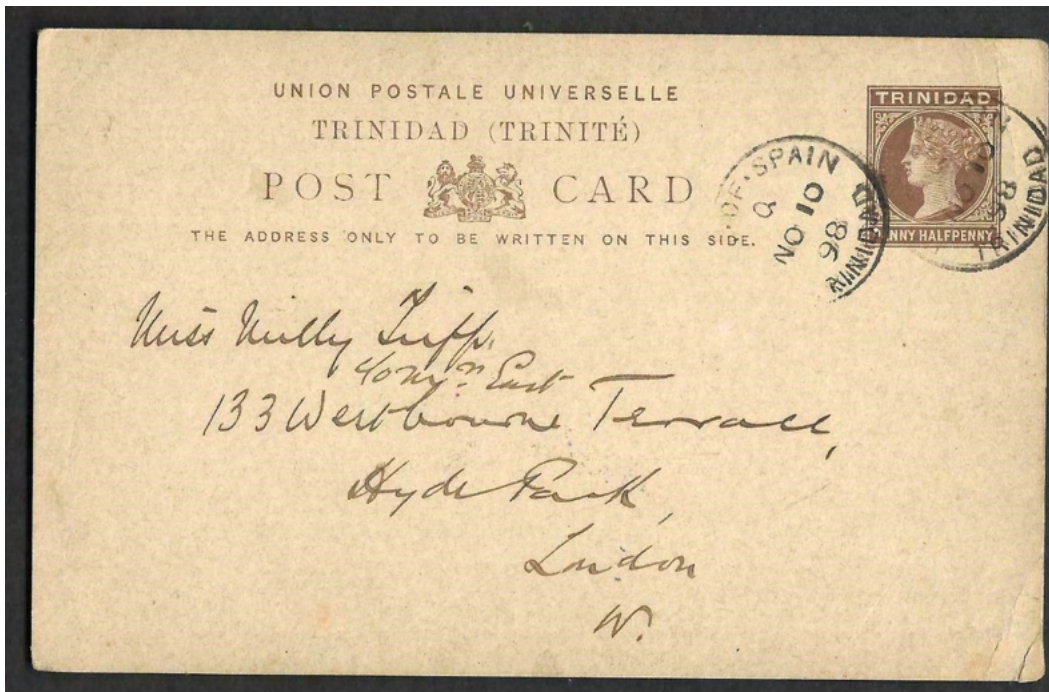 UNION POSTALE UNIVERSELLE
TRINIDAD (TRINITÉ)
POST CARD
THE ADDRESS ONLY TO BE WRITTEN ON THIS SIDE.
TRINIDAD
NNY HALFPENNY
OF-SPAIN
NO 10
98
TRINIDAD
10
98
TRINIDAD
Miss Milly
East
133 Westbourne Terrace,
Hyde Park,
London
W.